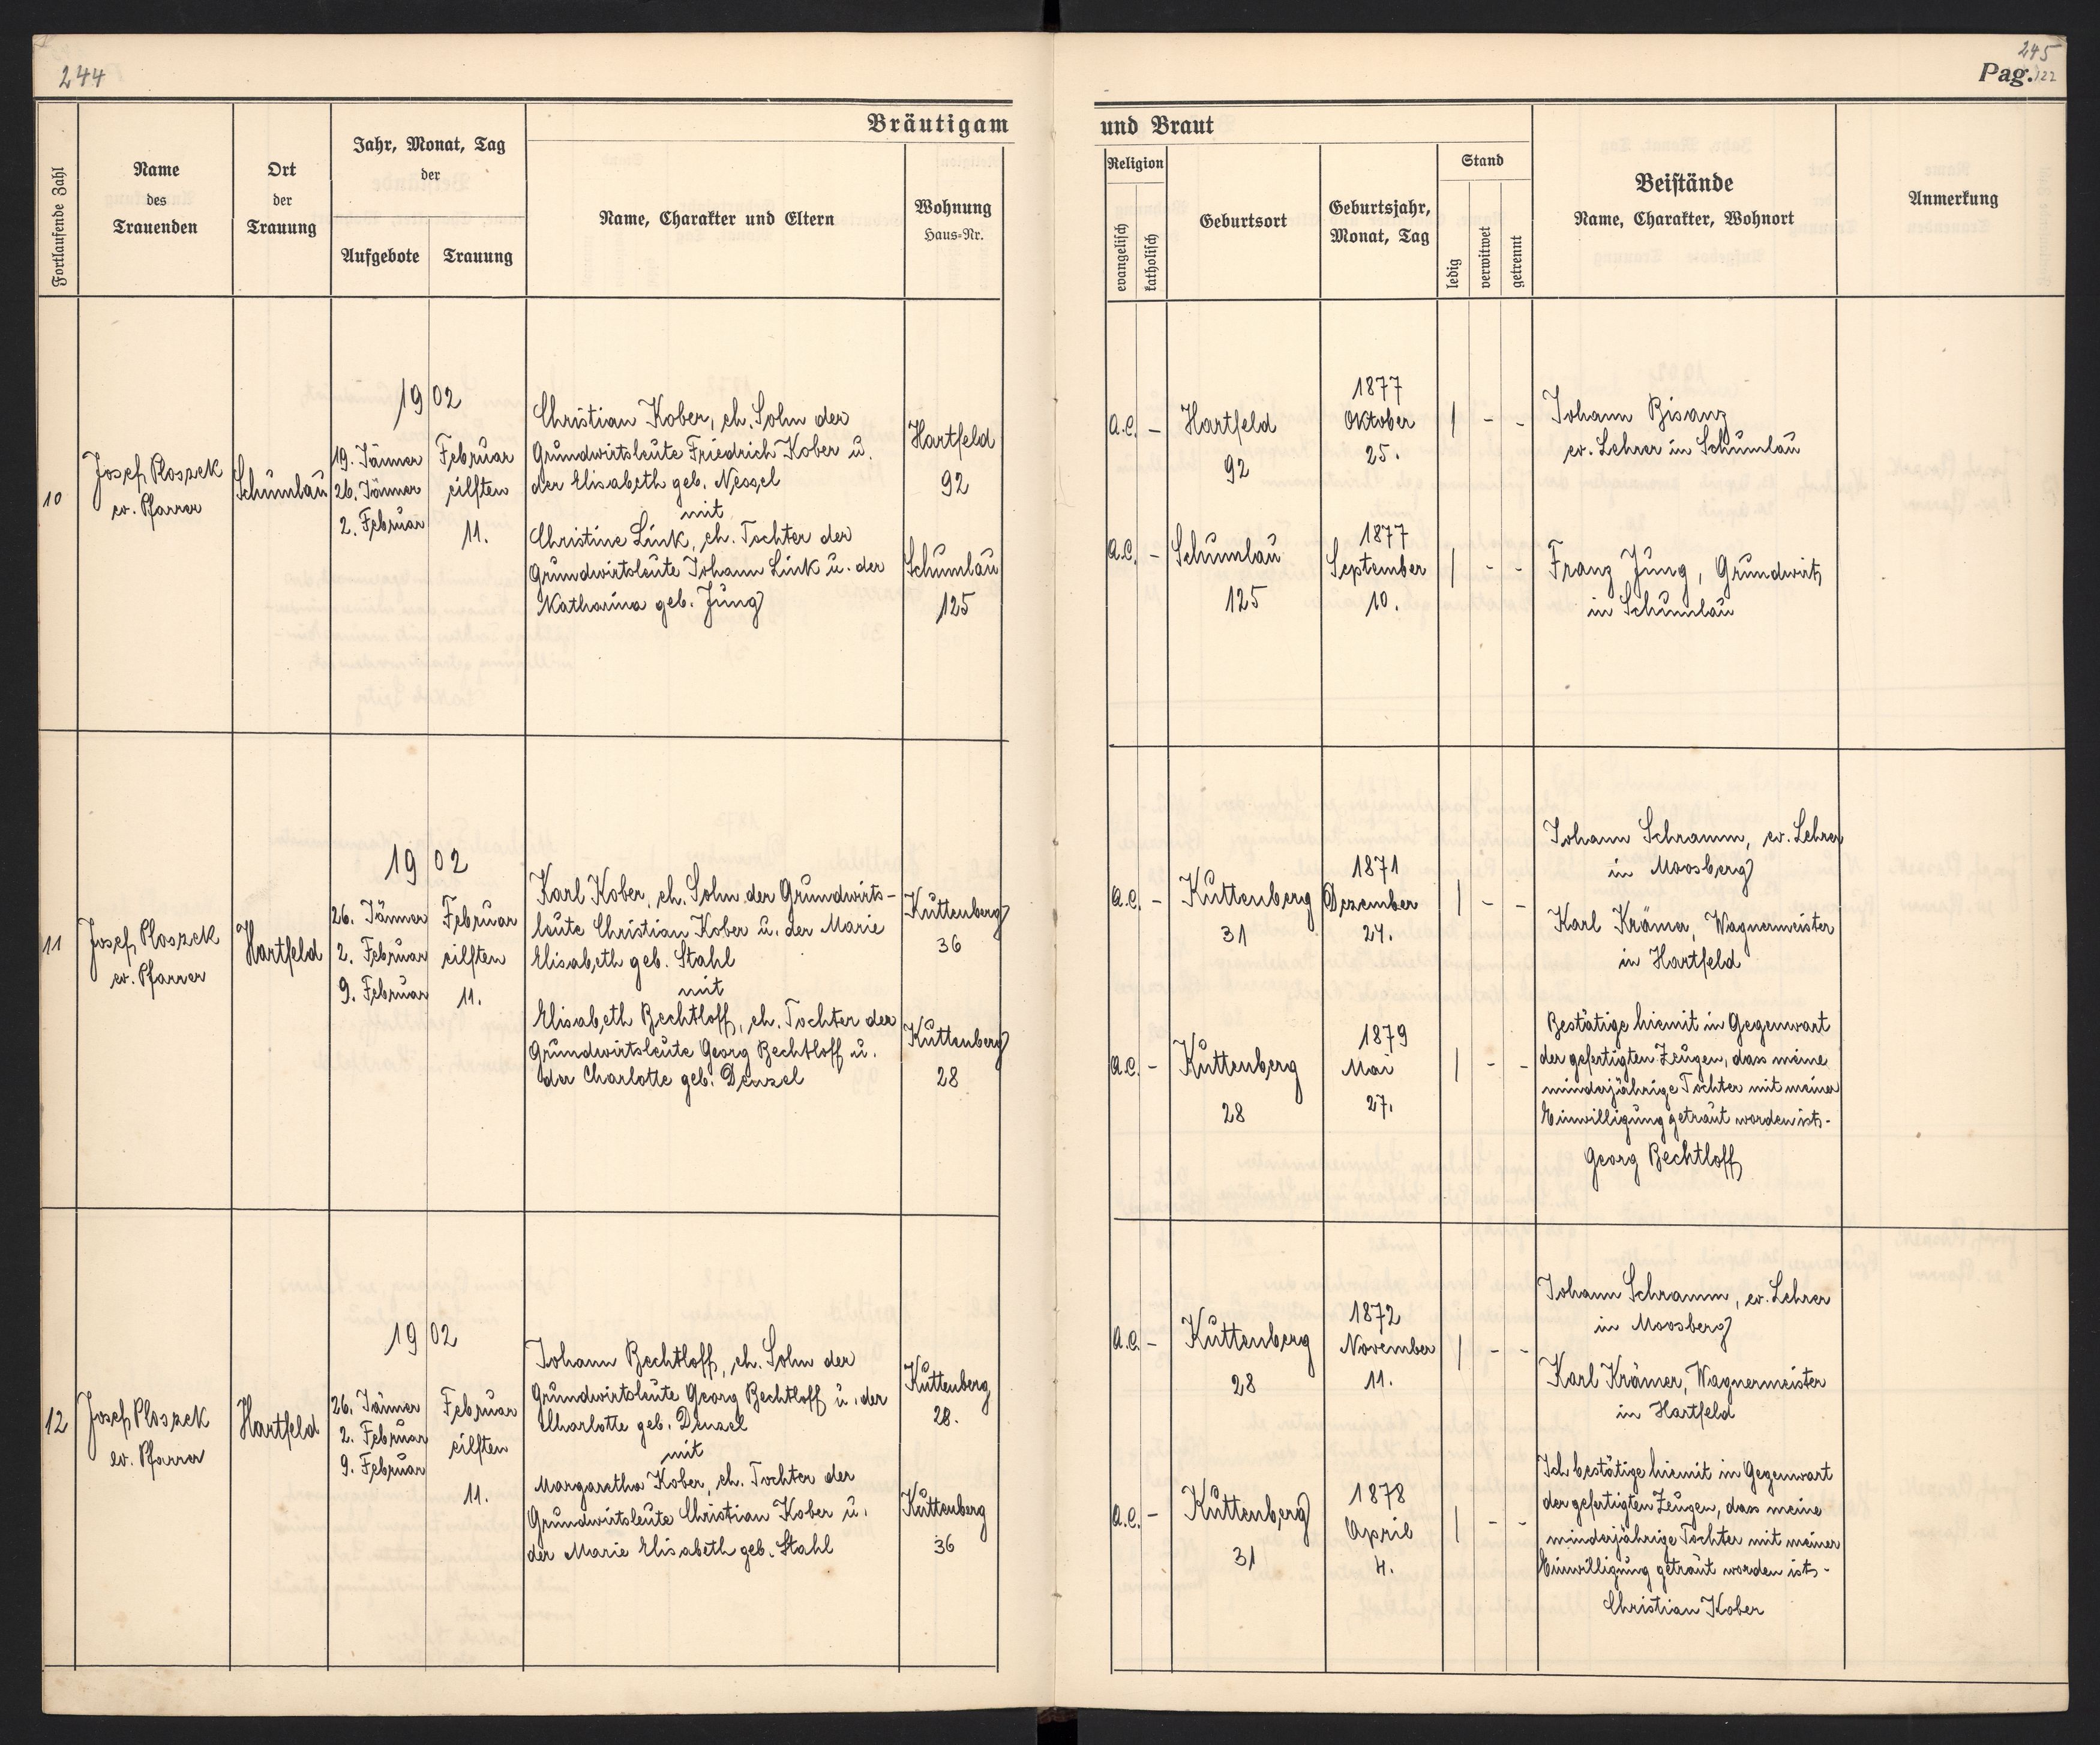 244
245
Pag. 122
Bräutigam
und Braut
Fortlaufende Zahl
Name
des
Trauenden
Ort
der
Trauung
Jahr, Monat, Tag
der
Aufgebote
Trauung
Name, Charakter und Eltern
Wohnung
Haus=Nr.
Religion
evangelisch
katholisch
Geburtsort
Geburtsjahr,
Monat, Tag
Stand
ledig
verwitwet
getrennt
Beistände
Name, Charakter, Wohnort
Anmerkung
10
Josef Ploszek
ev. Pfarrer
Schumlau
1902
19. Jänner
26. Jänner
2. Februar
Februar
eilften
11.
Christian Kober, eh. Sohn der
Grundwirtsleute Friedrich Kober u.
der Elisabeth geb. Nessel
mit
Christine Link, eh. Tochter der
Grundwirtsleute Johann Link u. der
Katharina geb. Jung
Hartfeld
92
Schumlau
125
A.C. -
Hartfeld
92
1877
Oktober
25.
| - -
Johann Bisanz
ev. Lehrer in Schumlau
A.C. -
Schumlau
125
1877
September
10.
| - -
Franz Jung, Grundwirt
in Schumlau
11
Josef Ploszek
ev. Pfarrer
Hartfeld
1902
26. Jänner
2. Februar
9. Februar
Februar
eilften
11.
Karl Kober, eh. Sohn der Grundwirts-
leute Christian Kober u. der Marie
Elisabeth geb. Stahl
mit
Elisabeth Bechtloff, eh. Tochter der
Grundwirtsleute Georg Bechtloff u.
der Charlotte geb. Denzel
Kuttenberg
36
Kuttenberg
28
A.C. -
Kuttenberg
31
1871
Dezember
27.
| - -
Johann Schramm, ev. Lehrer
in Moosberg
Karl Krämer, Wagnermeister
in Hartfeld
A.C. -
Kuttenberg
28
1879
Mai
27.
| - -
Bestätige hiemit in Gegenwart
der gefertigten Zeugen, dass meine
minderjährige Tochter mit meiner
Einwilligung getraut worden ist. -
Georg Bechtloff
12
Josef Ploszek
ev. Pfarrer
Hartfeld
1902
26. Jänner
2. Februar
9. Februar
Februar
eilften
11.
Johann Bechtloff, eh. Sohn der
Grundwirtsleute Georg Bechtloff u. der
Charlotte geb. Denzel
mit
Margaretha Kober, eh. Tochter der
Grundwirtsleute Christian Kober u.
der Marie Elisabeth geb. Stahl
Kuttenberg
28.
Kuttenberg
36
A.C. -
Kuttenberg
28
1872
November
11.
| - -
Johann Schramm, ev. Lehrer
in Moosberg
Karl Krämer, Wagnermeister
in Hartfeld
A.C. -
Kuttenberg
31
1878
April
4.
| - -
Ich bestätige hiemit in Gegenwart
der gefertigten Zeugen, dass meine
minderjährige Tochter mit meiner
Einwilligung getraut worden ist. -
Christian Kober